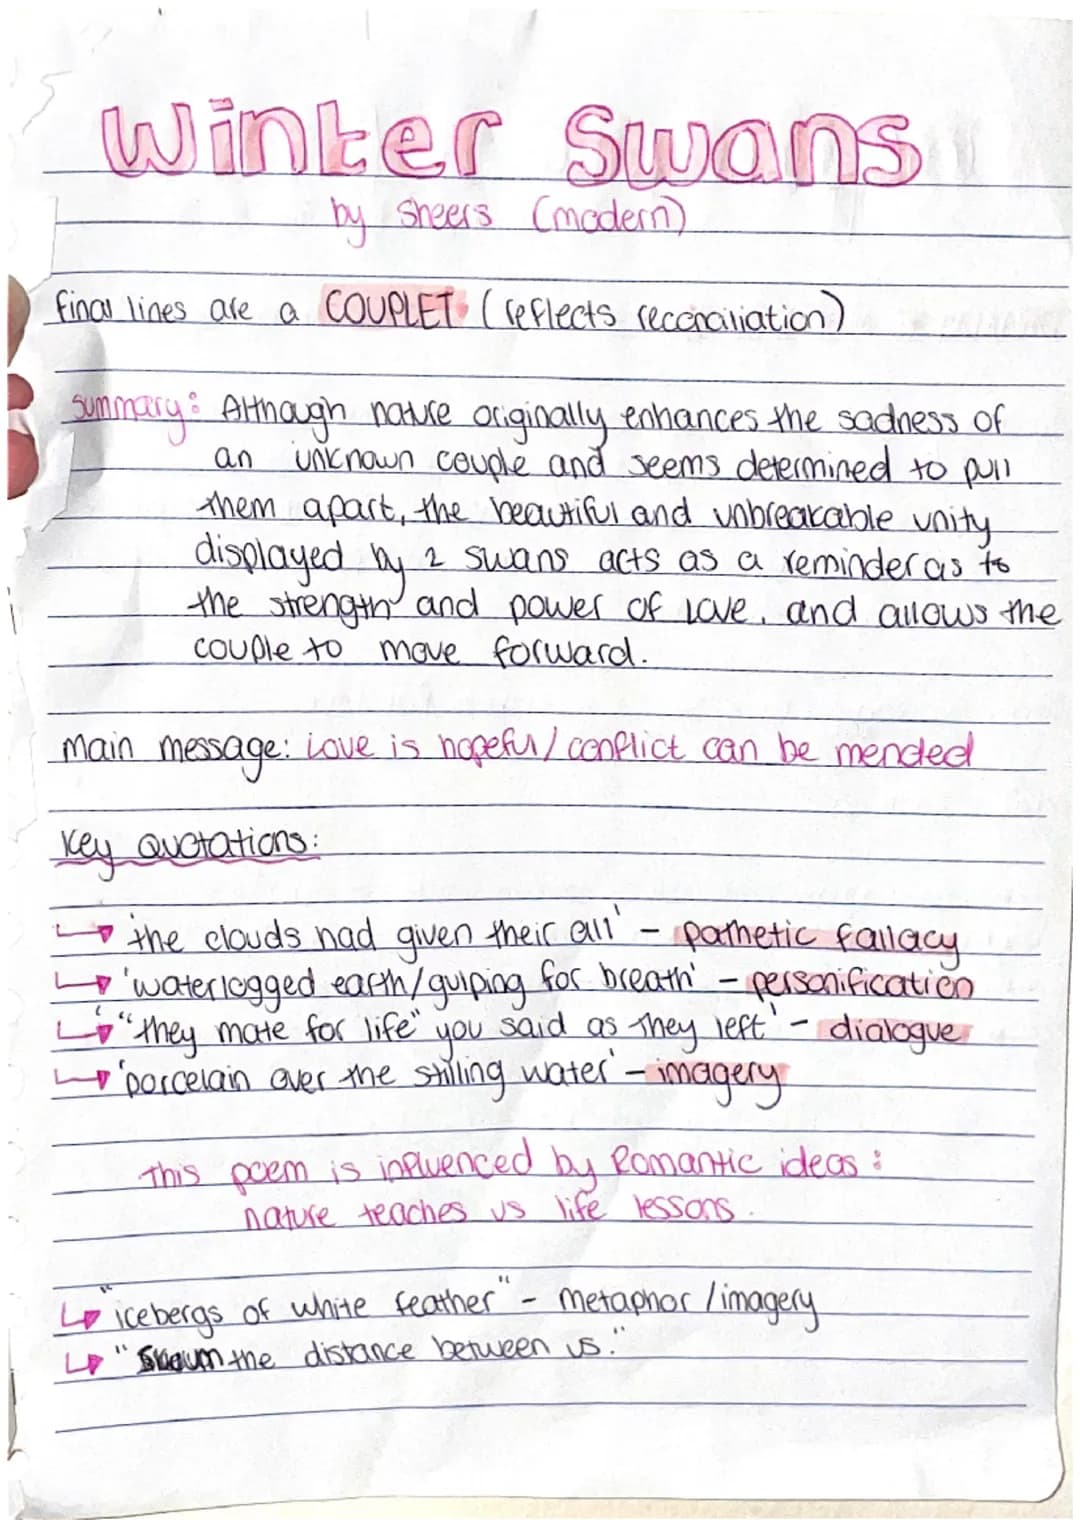 Winter Swans
by Sheers (modern)
final lines are a COUPLET (reflects reconciliation)
summary: Although nature originally enhances the sadness of
an unknown couple and seems determined to pull
them apart, the beautiful and unbreakable unity
displayed by 2 swans acts as a reminder as to
the strength and power of love, and allows the
couple to move forward.
main message: Love is hopeful/conflict can be mended
Key Quotations:
'the clouds had given their all' - pathetic fallacy
'waterlogged earth/gulping for breath' - personification
'"they mate for life" you said as they left' - dialogue
'porcelain over the stilling water' - imagery
This poem is influenced by Romantic ideas:
nature teaches us life lessons.
"icebergs of white feather" - metaphor/imagery
" the distance between us."